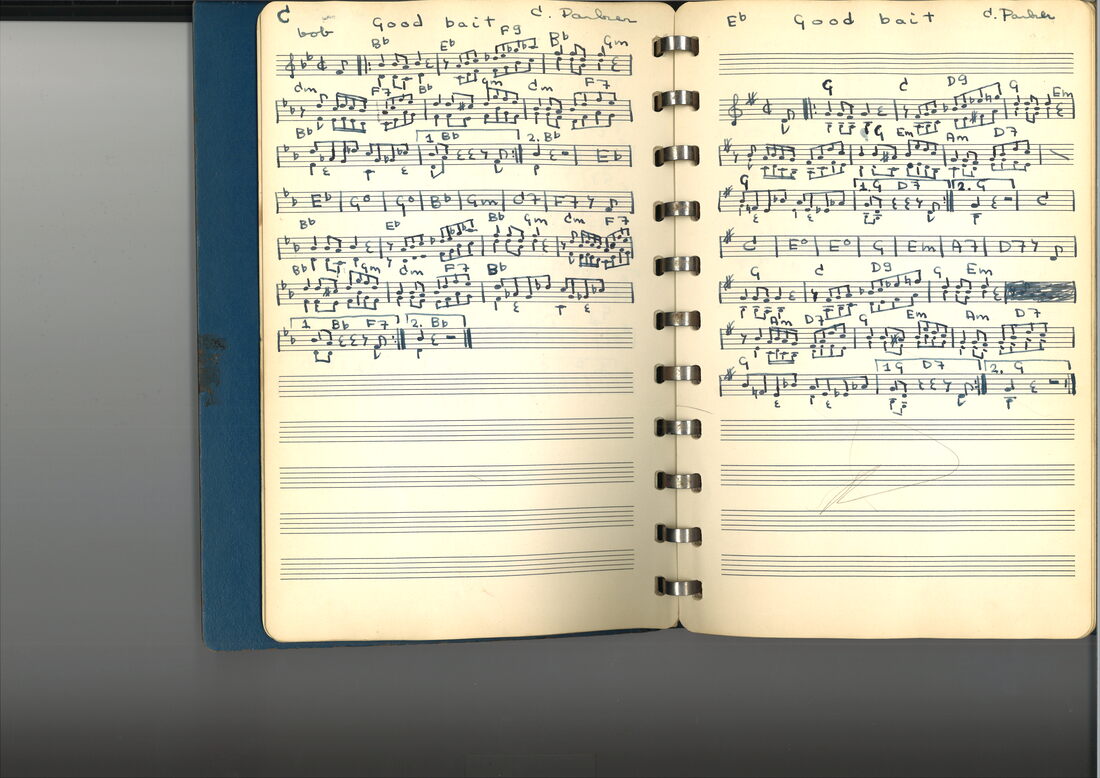 C Good bait C. Parker
bob
Bb Eb F9 Bb Gm
Cm F7 Bb Gm Cm F7
Bb 1. Bb 2. Bb Eb
Eb G° G° Bb Gm C7 F7
Bb Eb Bb Gm Cm F7
Bb Gm Cm F7 Bb
1. Bb F7 2. Bb
Eb Good bait C. Parker
G C D9 G Em
G Em Am D7
G 1. G D7 2. G C
C E° E° G Em A7 D7
G C D9 G Em
Am D7 G Em Am D7
G 1 G D7 2. G